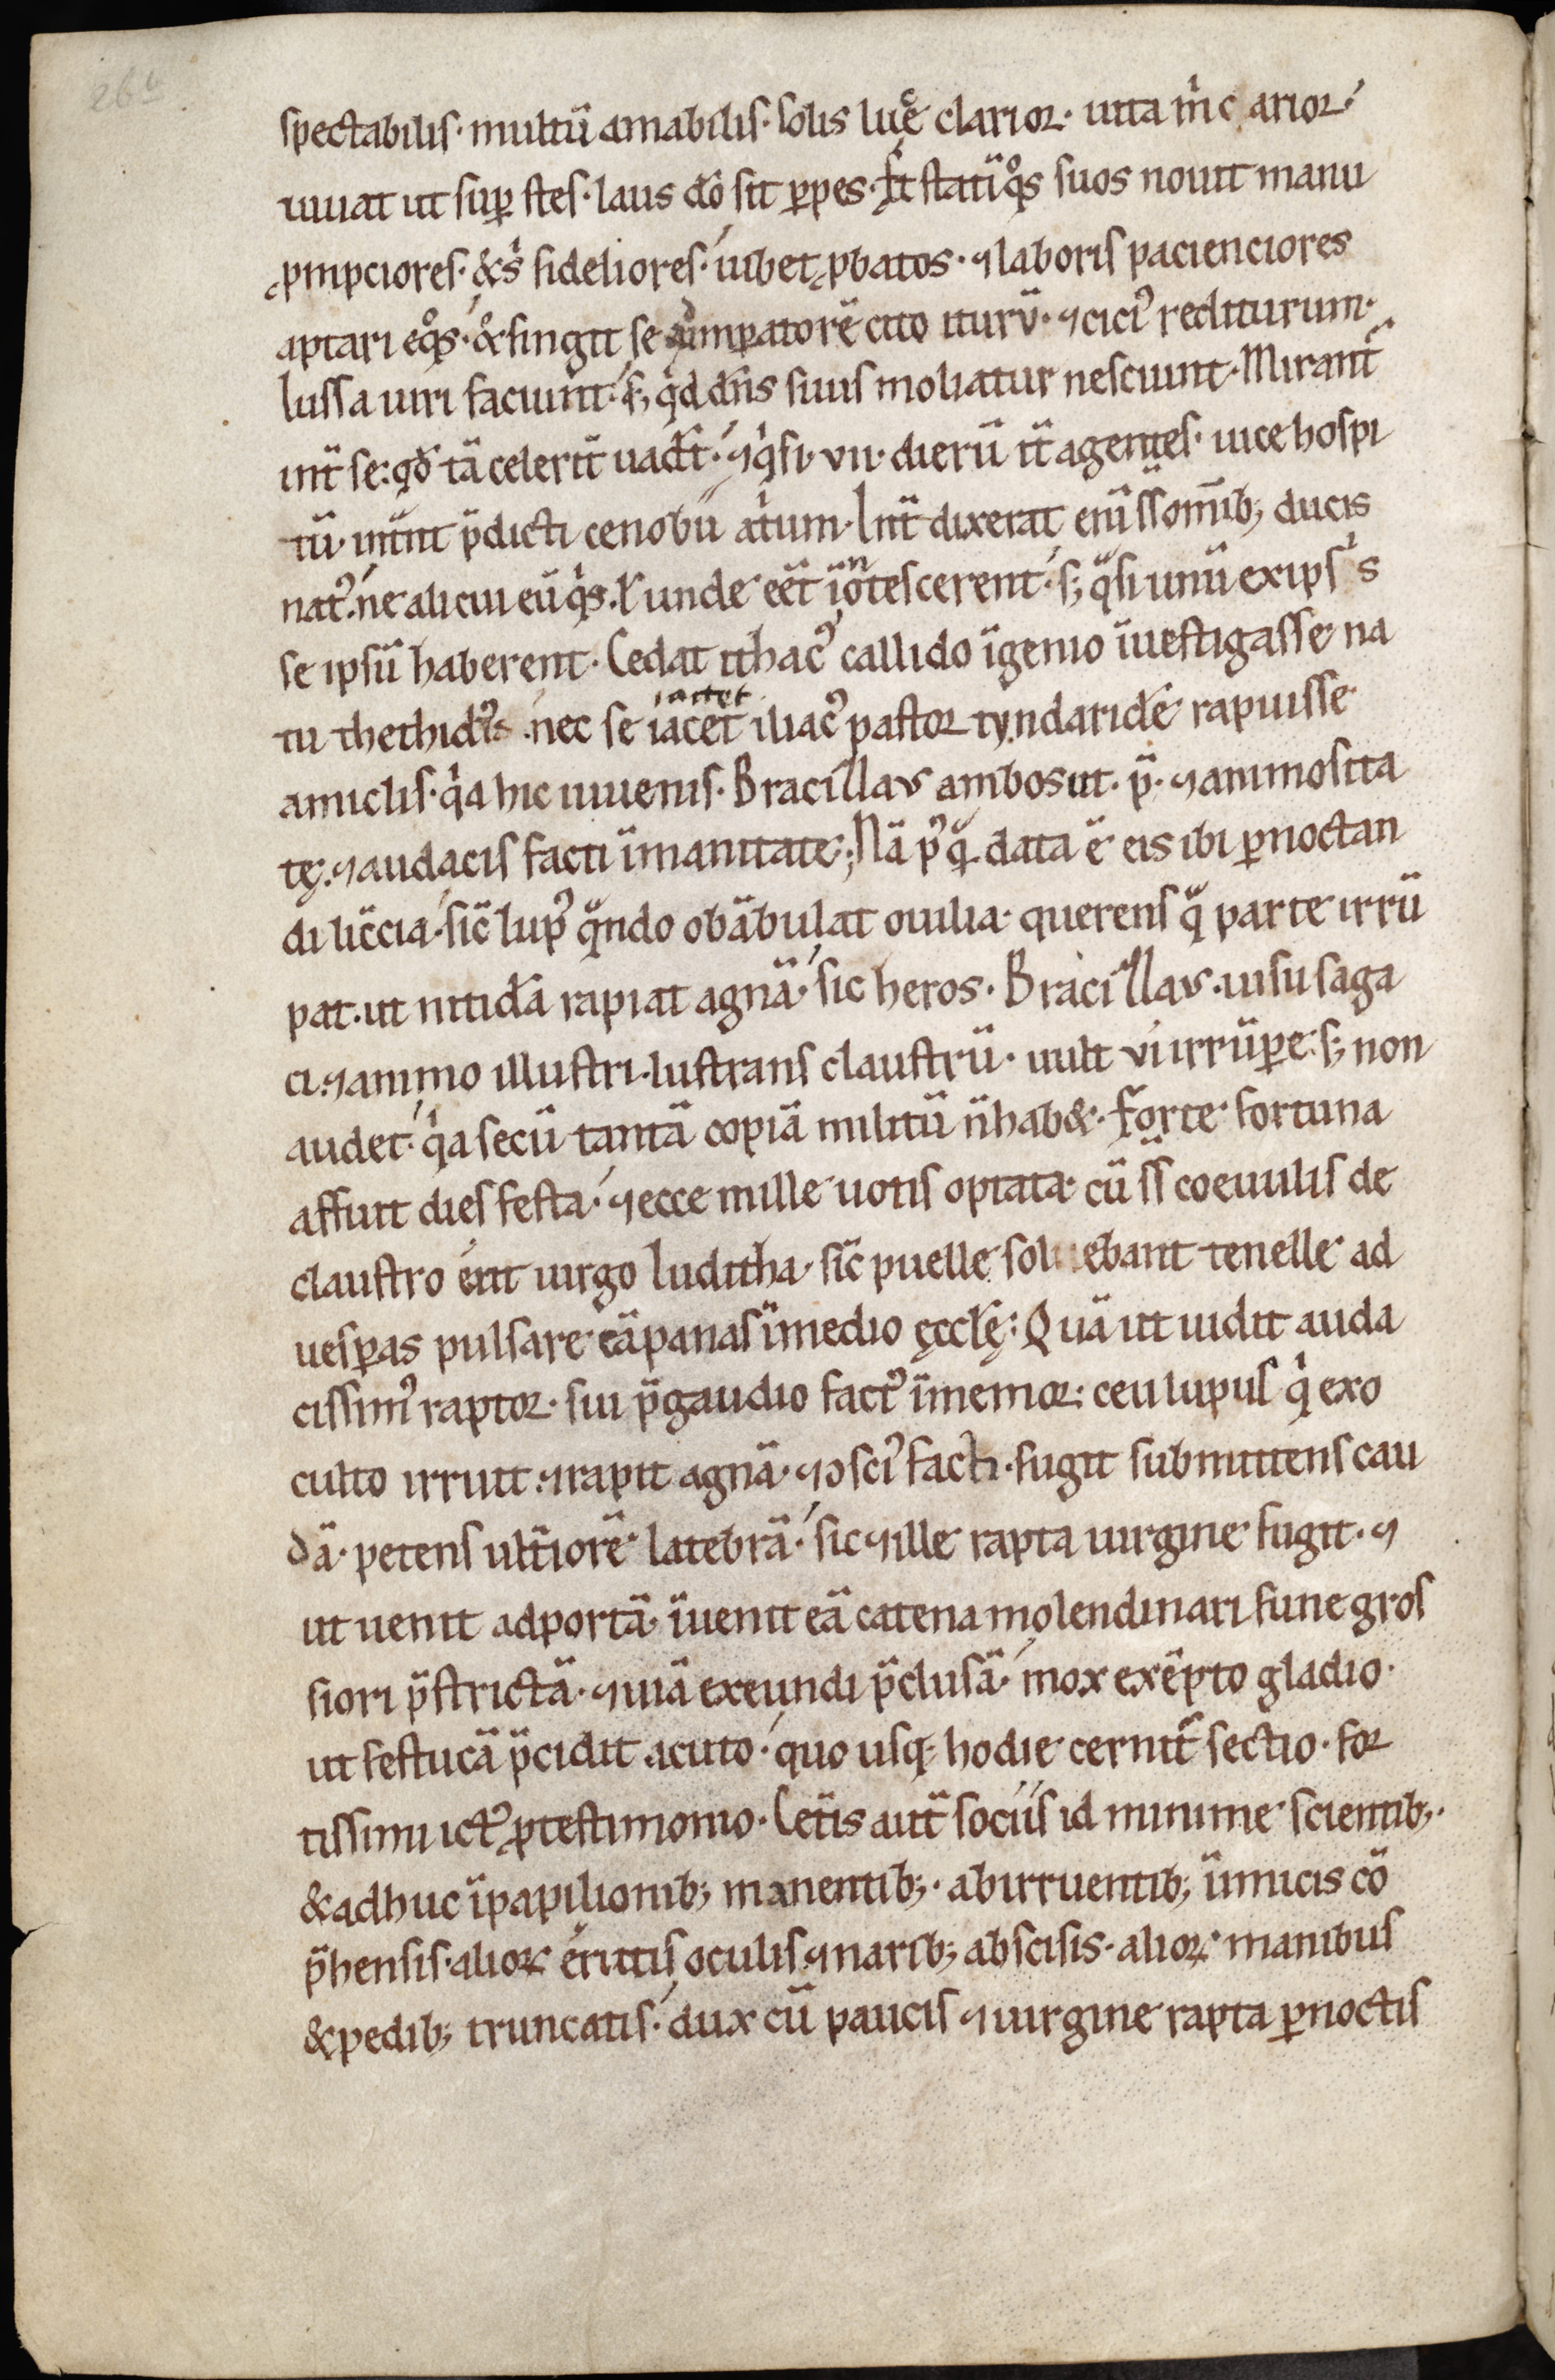 26b
spectabilis· multū amabilis· solis luce clarior· uita m̄ c arior·
uiuat ut sup stes· laus dō sit ppes· Et statī qͦs suos nouit manu
pmpciores· & sͥ fideliores· iubet pbatos· ⁊ laboris pacienciores
aptari eqͦs· & fingit se ad imparatorē cito iturū· ⁊ ciciꝰ rediturum·
Iussa uiri faciunt· s; qͥd dn̄s suus moliatur nesciunt· Mirant̄
int̄ se: qd̄ tā celerit̄ uadāt· ⁊ qͣsi· vii· dierū it̄ agentes· uice hospi
tū· inūnt p̄dicti cenobii atͥum· Int̄dixerat enī ss omīb; ducis
natꝰ· ne alicui eū qͥs· ł unde eēt īnotescerent· s; qͣsi unū ex ipsͥs
se ipsū haberent· Cedat ithacꝰ callido īgenio īuestigasse na
tū thethidꝰis· nec se iacet iactet iliacꝰ pastor tyndaridē rapuisse
amiclis· qͥa hic iuuenis· Bracizlaꝰ ambos uīt· p̄· ⁊ animosita
tę· ⁊ audacis facti īmanitate; Nā pꝰqͣ data ē eis ibi pnoctan
di lic̄cia· sic̄ lupꝰ qͣndo obābulat ouilia· querens qͣ parte irrū
pat· ut nitidā rapiat agnā· sic heros· Bracizlaꝰ· uisu saga
ci· ⁊ animo illustri· lustrans claustrū· uult vi irrūpe· s; non
audet· qͥa secū tantā copiā militū n̄ hab&· Forte fortuna
affuit dies festa· ⁊ ecce mille uotis optata· cū ss coeuulis de
claustro erīt uirgo Iuditha· sic̄ puelle soluebant tenelle ad
uespas pulsare cāpanas ī medio ęccl̄ę: Quā ut uidit auda
cissimꝰ raptor· sui p̄ gaudio factꝰ īmemor: ceu lupus qͥ ex o
culto irruit· ⁊ rapit agnā· ⁊ ↄsciꝰ facti· fugit submittens cau
dā· petens ult̄iorē latebrā· sic ⁊ ille rapta uirgine fugit· ⁊
ut uenit ad portā· īuenit eā catena molendinari fune gros
siori p̄strictā· ⁊ uiā exeundi p̄clusā· mox exēpto gladio·
ut festucā p̄cidit acuto· quo usq; hodie cernit̄ sectio· for
tissimi ictꝰ p testimonio· Cet̄is aut̄ sociis id minime scientib;·
& adhuc ī papilionib; manentib;· ab irruentib; īimicis cō
p̄hensis· alioꝝ erutis oculis ⁊ narib; abscisis· alioꝝ manibus
& pedib; truncatis· dux cū paucis ⁊ uirgine rapta p noctis